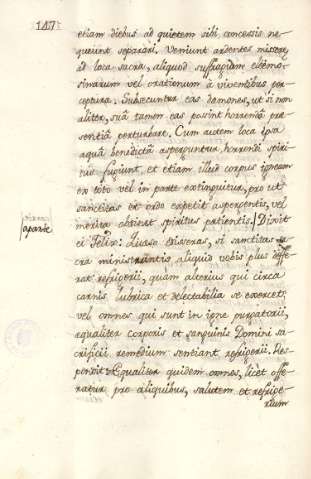 147
etiam diebus ad quietem sibi concessis ne-
queunt separari. Veniunt ardentes miseræ
ad loca sacra, aliquod suffragium elemo-
sinarum vel orationum à viventibus per-
ceptura. Subsecuntur eas demones, ut si non
aliter, suâ tamen eas possint horrendâ præ-
sentiâ perturbare. Cum autem loca ipsa
aquâ benedictâ asperguntur horrendi spiri-
tus fugiunt, et etiam illud corpus igneum
ex toto vel in parte extinguitur, pro ut
sanctitas et ordo expetit aspergentis, vel
merita obtinet spiritus patientis. Dixit
aparte
ei Felix: Quæso edisseras, si sanctitas sa-
cra ministrantis aliquid vobis plus affe-
rat refrigerii, quam alterius qui circa
carnis lubrica et delectabilia se exercet;
vel omnes qui sunt in igne purgatorii,
æqualiter corporis et sanguinis Domini sa-
crificii remedium sentiant refrigerii. Res-
pondit Equaliter quidem omnes, licet offe-
ratur pro aliquibus, salutem et refrige-
rium